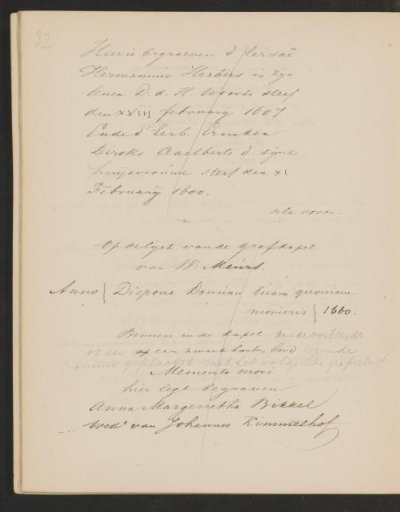 32
Hier is begraeven d'Eersaē
Hermannus Herbers in zijn
leven D. d. H. Woorts sterf
den XXIII february 1607
Ende d' Eerb. Ermken
Dircks Aaelberts d. syne
huijsvrouwe sterf den XI
February 1600.
als voren.
Op de lijst van de grafkapel
van W. Meurs.
Anno { Dispone Domum tuam quoniam
morieris } 1660.
Binnen in de kapel
op een zwart houten bord
Memento mori
hier legt begraven
Anna Margerretha Bikkel
Wede van Johannes Kemmelshof